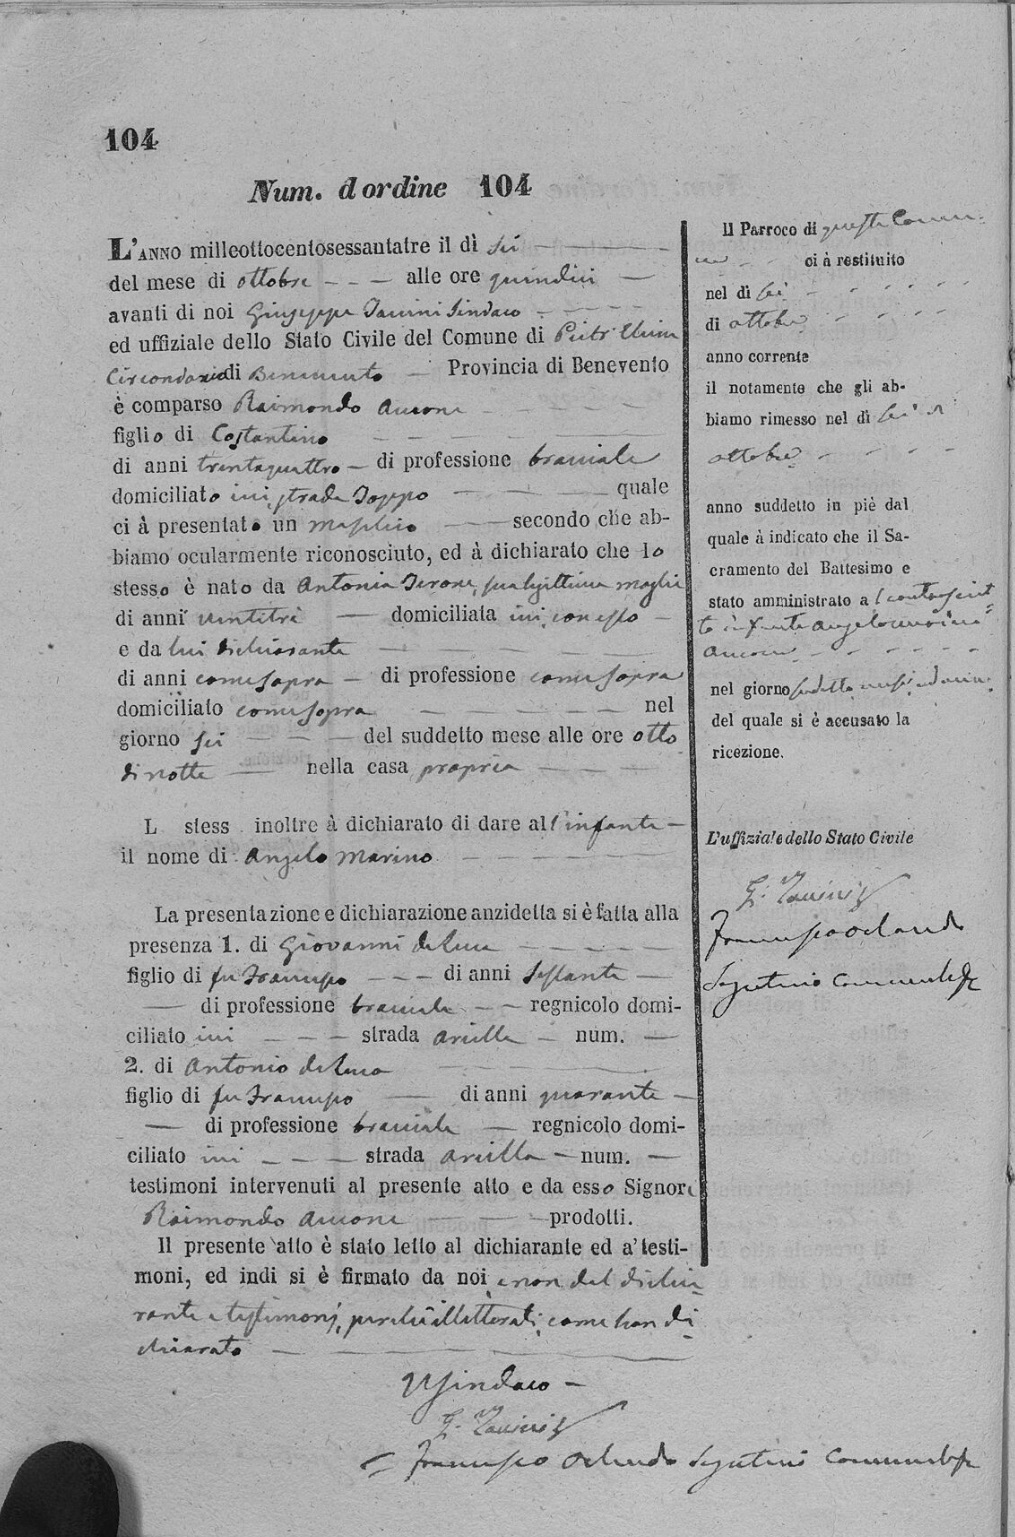 104
Num. d'ordine 104
L'ANNO milleottocentosessantatre il dì sei
del mese di ottobre alle ore quindici
avanti di noi Giuseppe Iavini Sindaco
ed uffiziale dello Stato Civile del Comune di Pietr'Elcina
Circondario di Benevento Provincia di Benevento
è comparso Raimondo Aucone
figlio di Costantino
di anni trentaquattro di professione bracciale
domiciliato ivi, strada Toppo quale
ci à presentato un maschio secondo che ab-
biamo ocularmente riconosciuto, ed à dichiarato che lo
stesso è nato da Antonia Ierone, sua legittima moglie
di anni ventitrè domiciliata ivi, con esso
e da lui dichiarante
di anni come sopra di professione come sopra
domiciliato come sopra nel
giorno sei del suddetto mese alle ore otto
di notte nella casa propria
L stess inoltre à dichiarato di dare all'infante
il nome di Angelo Marino
La presentazione e dichiarazione anzidetta si è fatta alla
presenza 1. di Giovanni de Luca
figlio di fu Francesco di anni sessanta
di professione bracciale regnicolo domi-
ciliato ivi strada arcella num.
2. di Antonio de Luca
figlio di fu Francesco di anni quaranta
di professione bracciale regnicolo domi-
ciliato ivi strada arcella num.
testimoni intervenuti al presente atto e da esso Signore
Raimondo Aucone prodotti.
Il presente atto è stato letto al dichiarante ed a' testi-
moni, ed indi si è firmato da noi, e non dal dichia-
rante e testimonj, perchè illetterati, come han di-
chiarato
Il Sindaco
G. Iavini
Francesco Orlando Segretario Communale
Il Parroco di questa Comu-
ne ci à restituito
nel dì sei
di ottobre
anno corrente
il notamento che gli ab-
biamo rimesso nel dì sei
ottobre
anno suddetto in piè dal
quale à indicato che il Sa-
cramento del Battesimo e
stato amministrato a l controscrit-
to infante Angelo Marino
Aucone
nel giorno sudetto
del quale si è accusato la
ricezione.
L'uffiziale dello Stato Civile
G. Iavini
Francesco Orlando
Segretario Communale